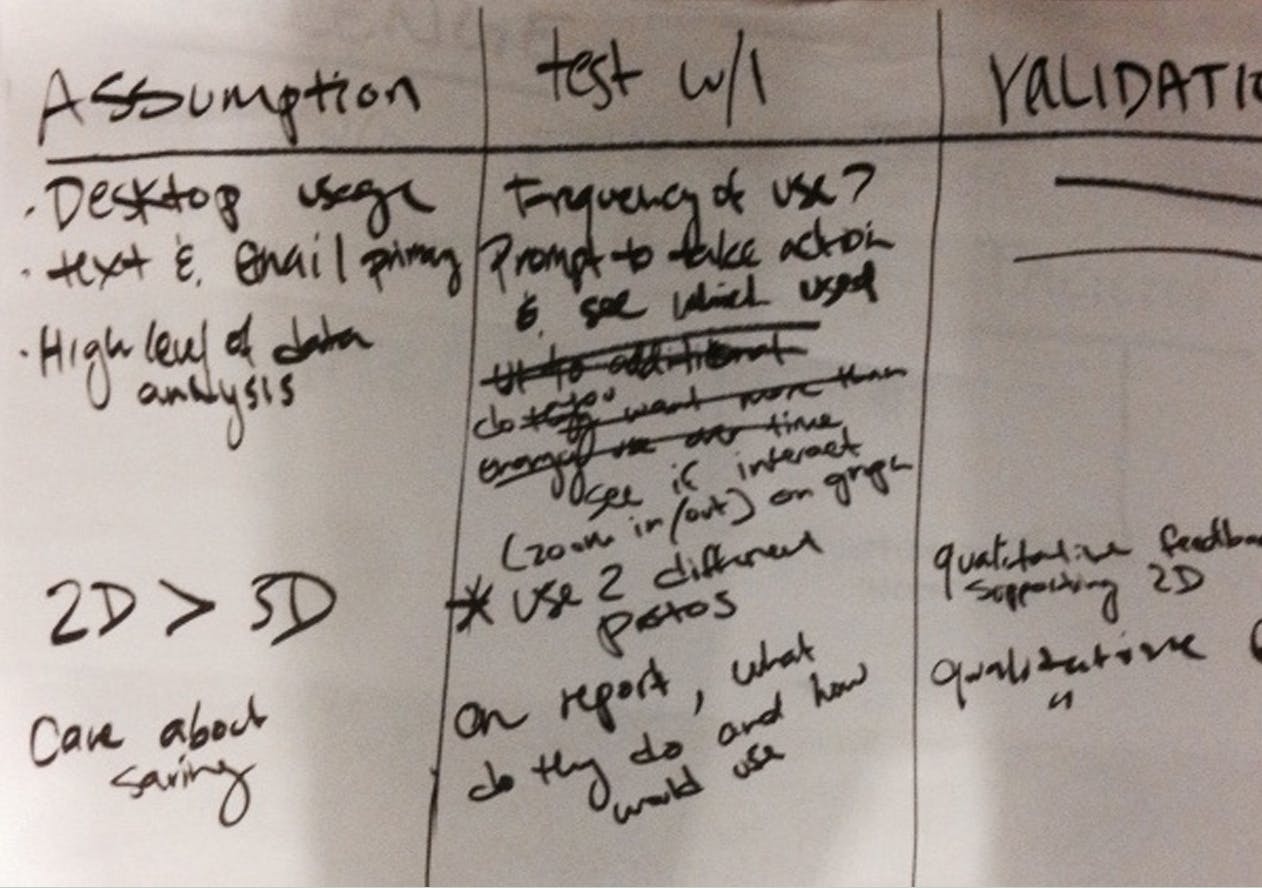 Assumption
test w/
VALIDATIO
· Desktop usage
Frequency of use?
· text & email primary
Prompt to take action
& see which used
· High level of data
analysis
additional
do
want more than
energy use over time
see if interact
(zoom in/out) on graph
2D > 3D
* Use 2 different
qualitative feedba
supporting 2D
Care about
saving
on report, what
do they do and how
would use
qualitative
"